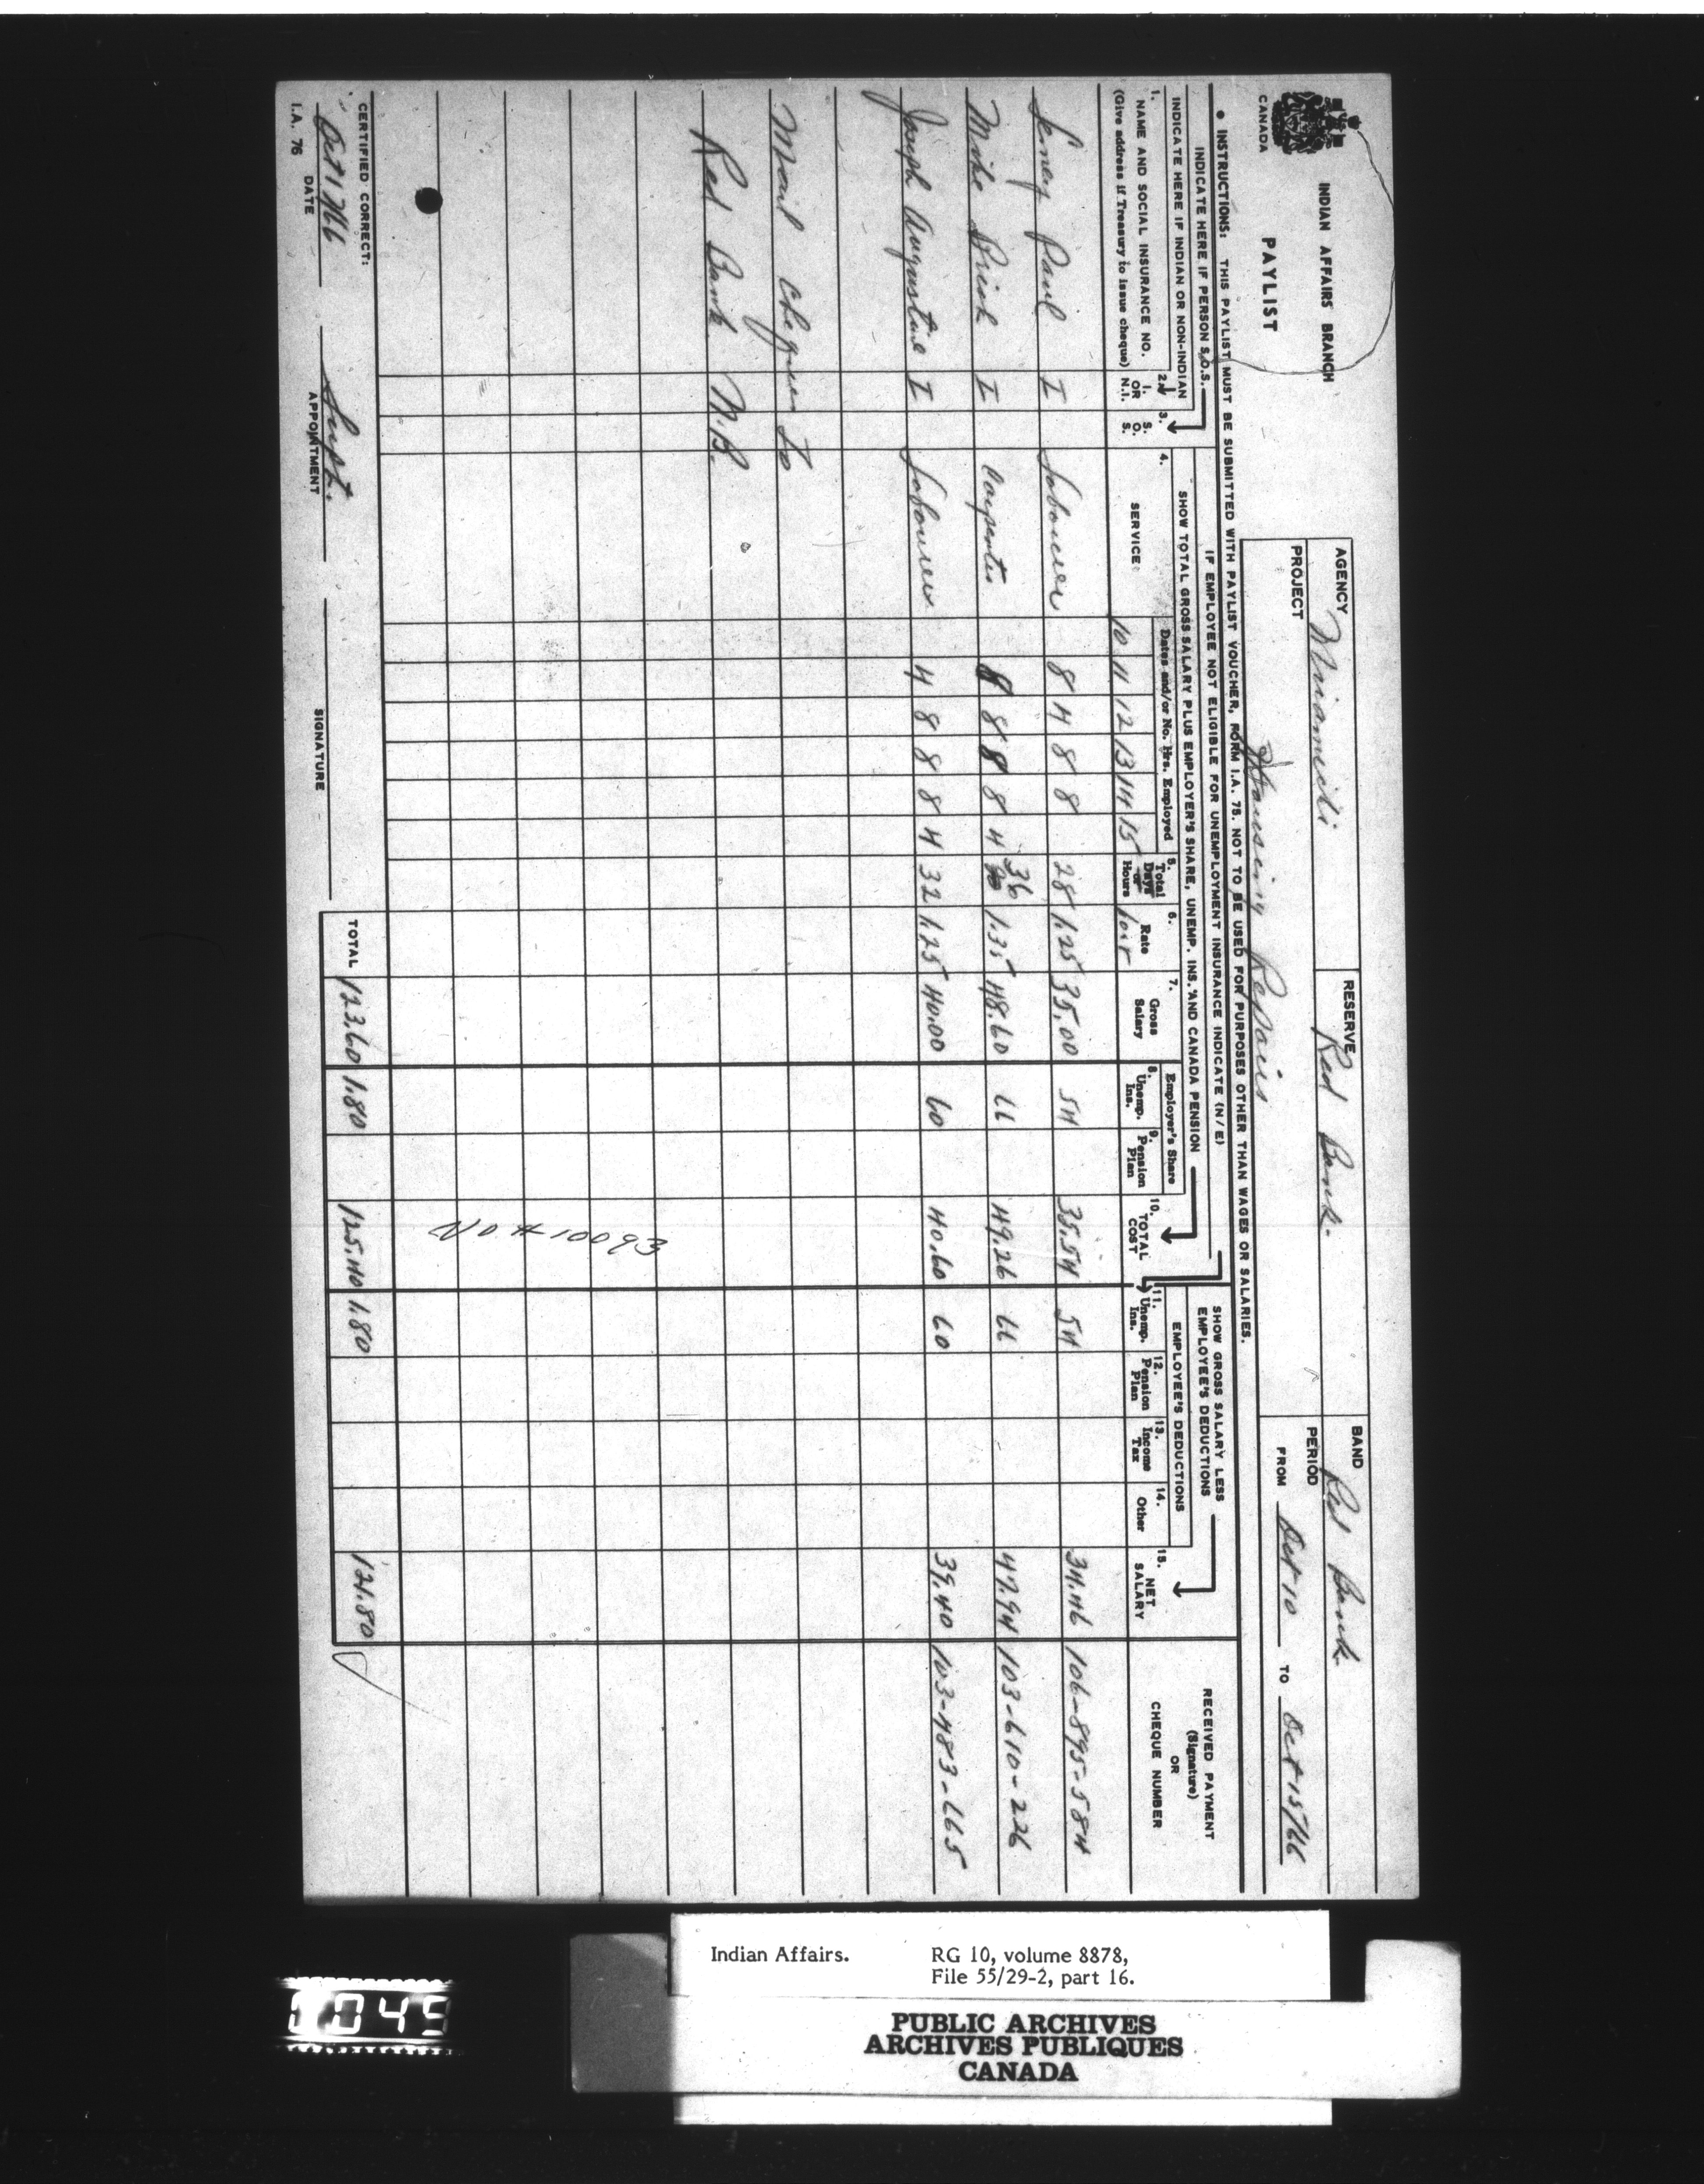 INDIAN AFFAIRS BRANCH
CANADA
PAYLIST
AGENCY Miramichi
RESERVE Red Bank.
BAND Red Bank
PROJECT Housing Repairs
PERIOD FROM Oct 10 TO Oct 15/66
• INSTRUCTIONS: THIS PAYLIST MUST BE SUBMITTED WITH PAYLIST VOUCHER, FORM I.A. 75. NOT TO BE USED FOR PURPOSES OTHER THAN WAGES OR SALARIES.
INDICATE HERE IF PERSON S.O.S.
IF EMPLOYEE NOT ELIGIBLE FOR UNEMPLOYMENT INSURANCE INDICATE (N/E)
SHOW GROSS SALARY LESS EMPLOYEE'S DEDUCTIONS
INDICATE HERE IF INDIAN OR NON-INDIAN
SHOW TOTAL GROSS SALARY PLUS EMPLOYER'S SHARE, UNEMP. INS. AND CANADA PENSION
RECEIVED PAYMENT (Signature) OR CHEQUE NUMBER
1. NAME AND SOCIAL INSURANCE NO. (Give address if Treasury to issue cheque)
2. I. OR N.I.
3. S. O. S.
4. SERVICE
Dates and/or No. Hrs. Employed
10 11 12 13 14 15
5. Total Days or Hours
6. Rate
7. Gross Salary
Employer's Share
8. Unemp. Ins.
9. Pension Plan
10. TOTAL COST
EMPLOYEE'S DEDUCTIONS
11. Unemp. Ins.
12. Pension Plan
13. Income Tax
14. Other
15. NET SALARY
Paul I Labourer 8 4 8 8 28 1.25 35.00 54 35.54 54 34.46 106-895-584
Mike I Carpenter 8 8 8 8 4 36 1.35 48.60 66 49.26 66 47.94 103-610-226
Joseph Augustine I Labourer 4 8 8 8 4 32 1.25 40.00 60 40.60 60 39.40 103-483-665
Mail Cheques To
Red Bank N.B.
No #10093
CERTIFIED CORRECT:
TOTAL 123.60 1.80 125.40 1.80 121.80
Supt.
DATE APPOINTMENT SIGNATURE
I.A. 76
Indian Affairs. RG 10, volume 8878,
File 55/29-2, part 16.
PUBLIC ARCHIVES
ARCHIVES PUBLIQUES
CANADA